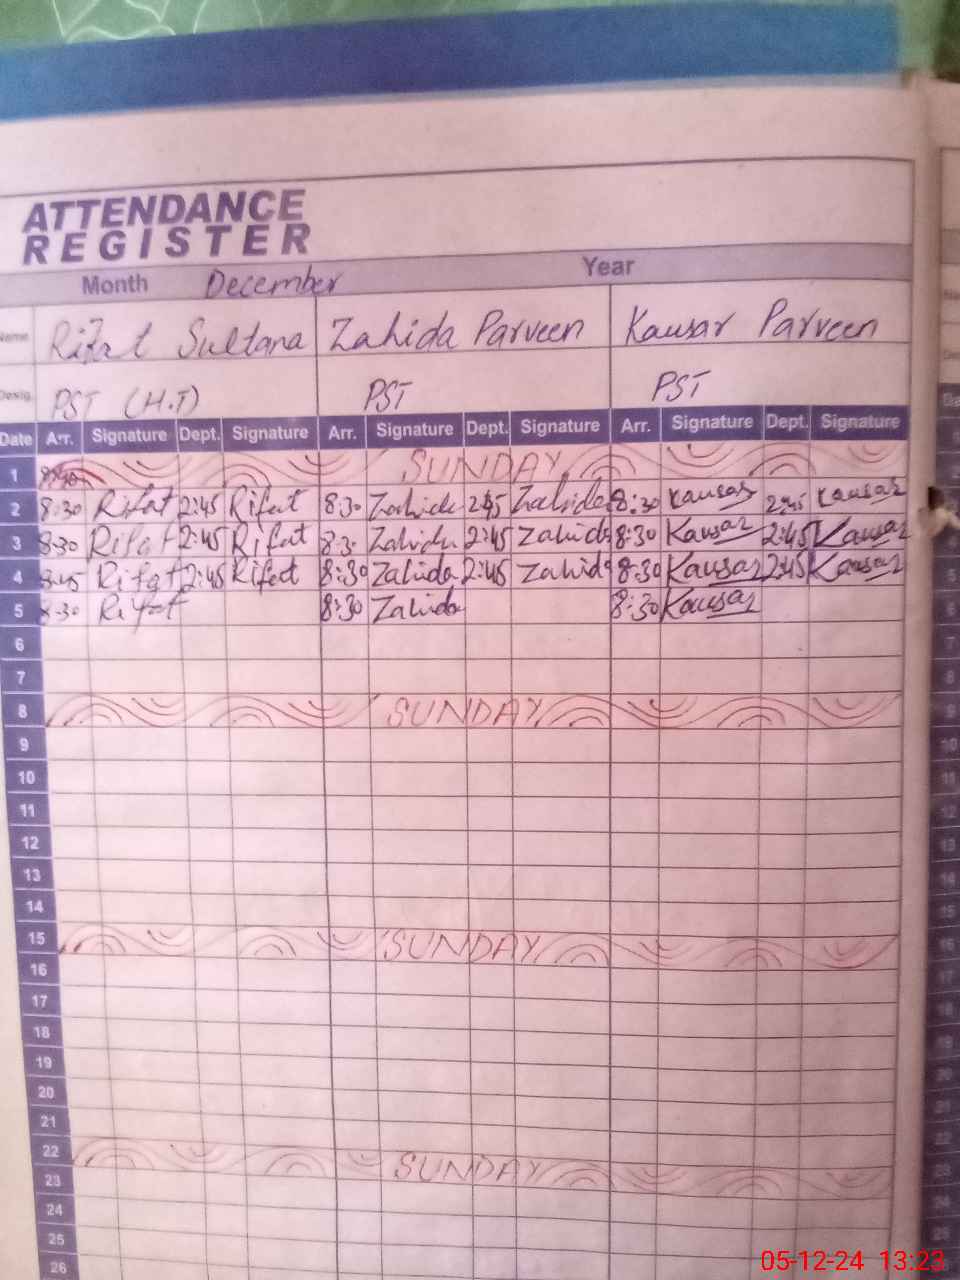 ATTENDANCE
REGISTER
Month December Year
Name Rifat Sultana Zahida Parveen Kausar Parveen
Desig. PST (H.T) PST PST
Date Arr. Signature Dept. Signature Arr. Signature Dept. Signature Arr. Signature Dept. Signature
1 SUNDAY
2 8:30 Rifat 2:45 Rifat 8:30 Zahida 2:45 Zahida 8:30 Kausar 2:45 Kausar
3 8:30 Rifat 2:45 Rifat 8:30 Zahida 2:45 Zahida 8:30 Kausar 2:45 Kausar
4 Rifat 2:45 Rifat 8:30 Zahida 2:45 Zahida 8:30 Kausar 2:45 Kausar
5 8:30 Rifat 8:30 Zahida 8:30 Kausar
6
7
8 SUNDAY
9
10
11
12
13
14
15 SUNDAY
16
17
18
19
20
21
22 SUNDAY
23
24
25
26
05-12-24 13:23